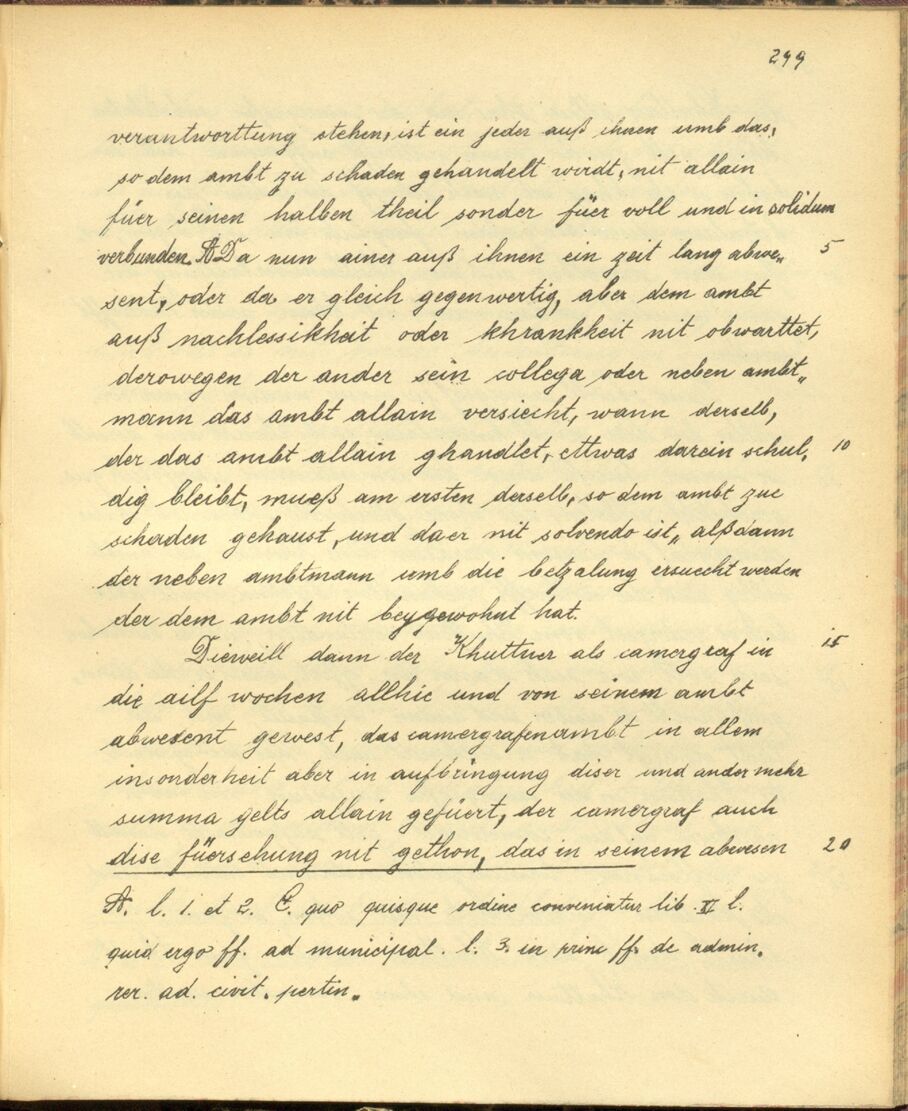 299
verantworttung stehen, ist ein jeder auß ihnen umb das,
so dem ambt zu schaden gehandelt wirdt, nit allain
füer seinen halben theil sonder füer voll und in solidum
verbunden. A Da nun ainer auß ihnen ein zeit lang abwe„ 5
sent, oder da er gleich gegenwertig, aber dem ambt
auß nachlessikhait oder khrankheit nit obwarttet,
derowegen der ander sein collega oder neben ambt„
mann das ambt allain versiecht, wann derselb,
der das ambt allain ghandlet, ettwas darein schul, 10
dig bleibt, mueß am ersten derselb, so dem ambt zue
schaden gehaust, und da er nit solvendo ist„ alßdann
der neben ambtmann umb die betzalung ersuecht werden
der dem ambt nit beygewohnt hat.
Dieweill dann der Khuttner als camergraf in 15
die ailf wochen allhie und von seinem ambt
abwesent gewest, das camergrafenambt in allem
insonderheit aber in aufbringung diser und ander mehr
summa gelts allain gefüert, der camergraf auch
dise füersehung nit gethon, das in seinem abwesen 20
A. l. 1. et 2. C. quo quisque ordine conveniatur lib. XI l.
quid ergo ff. ad municipal. l. 3. in princ ff. de admin.
rer. ad. civit. pertin.